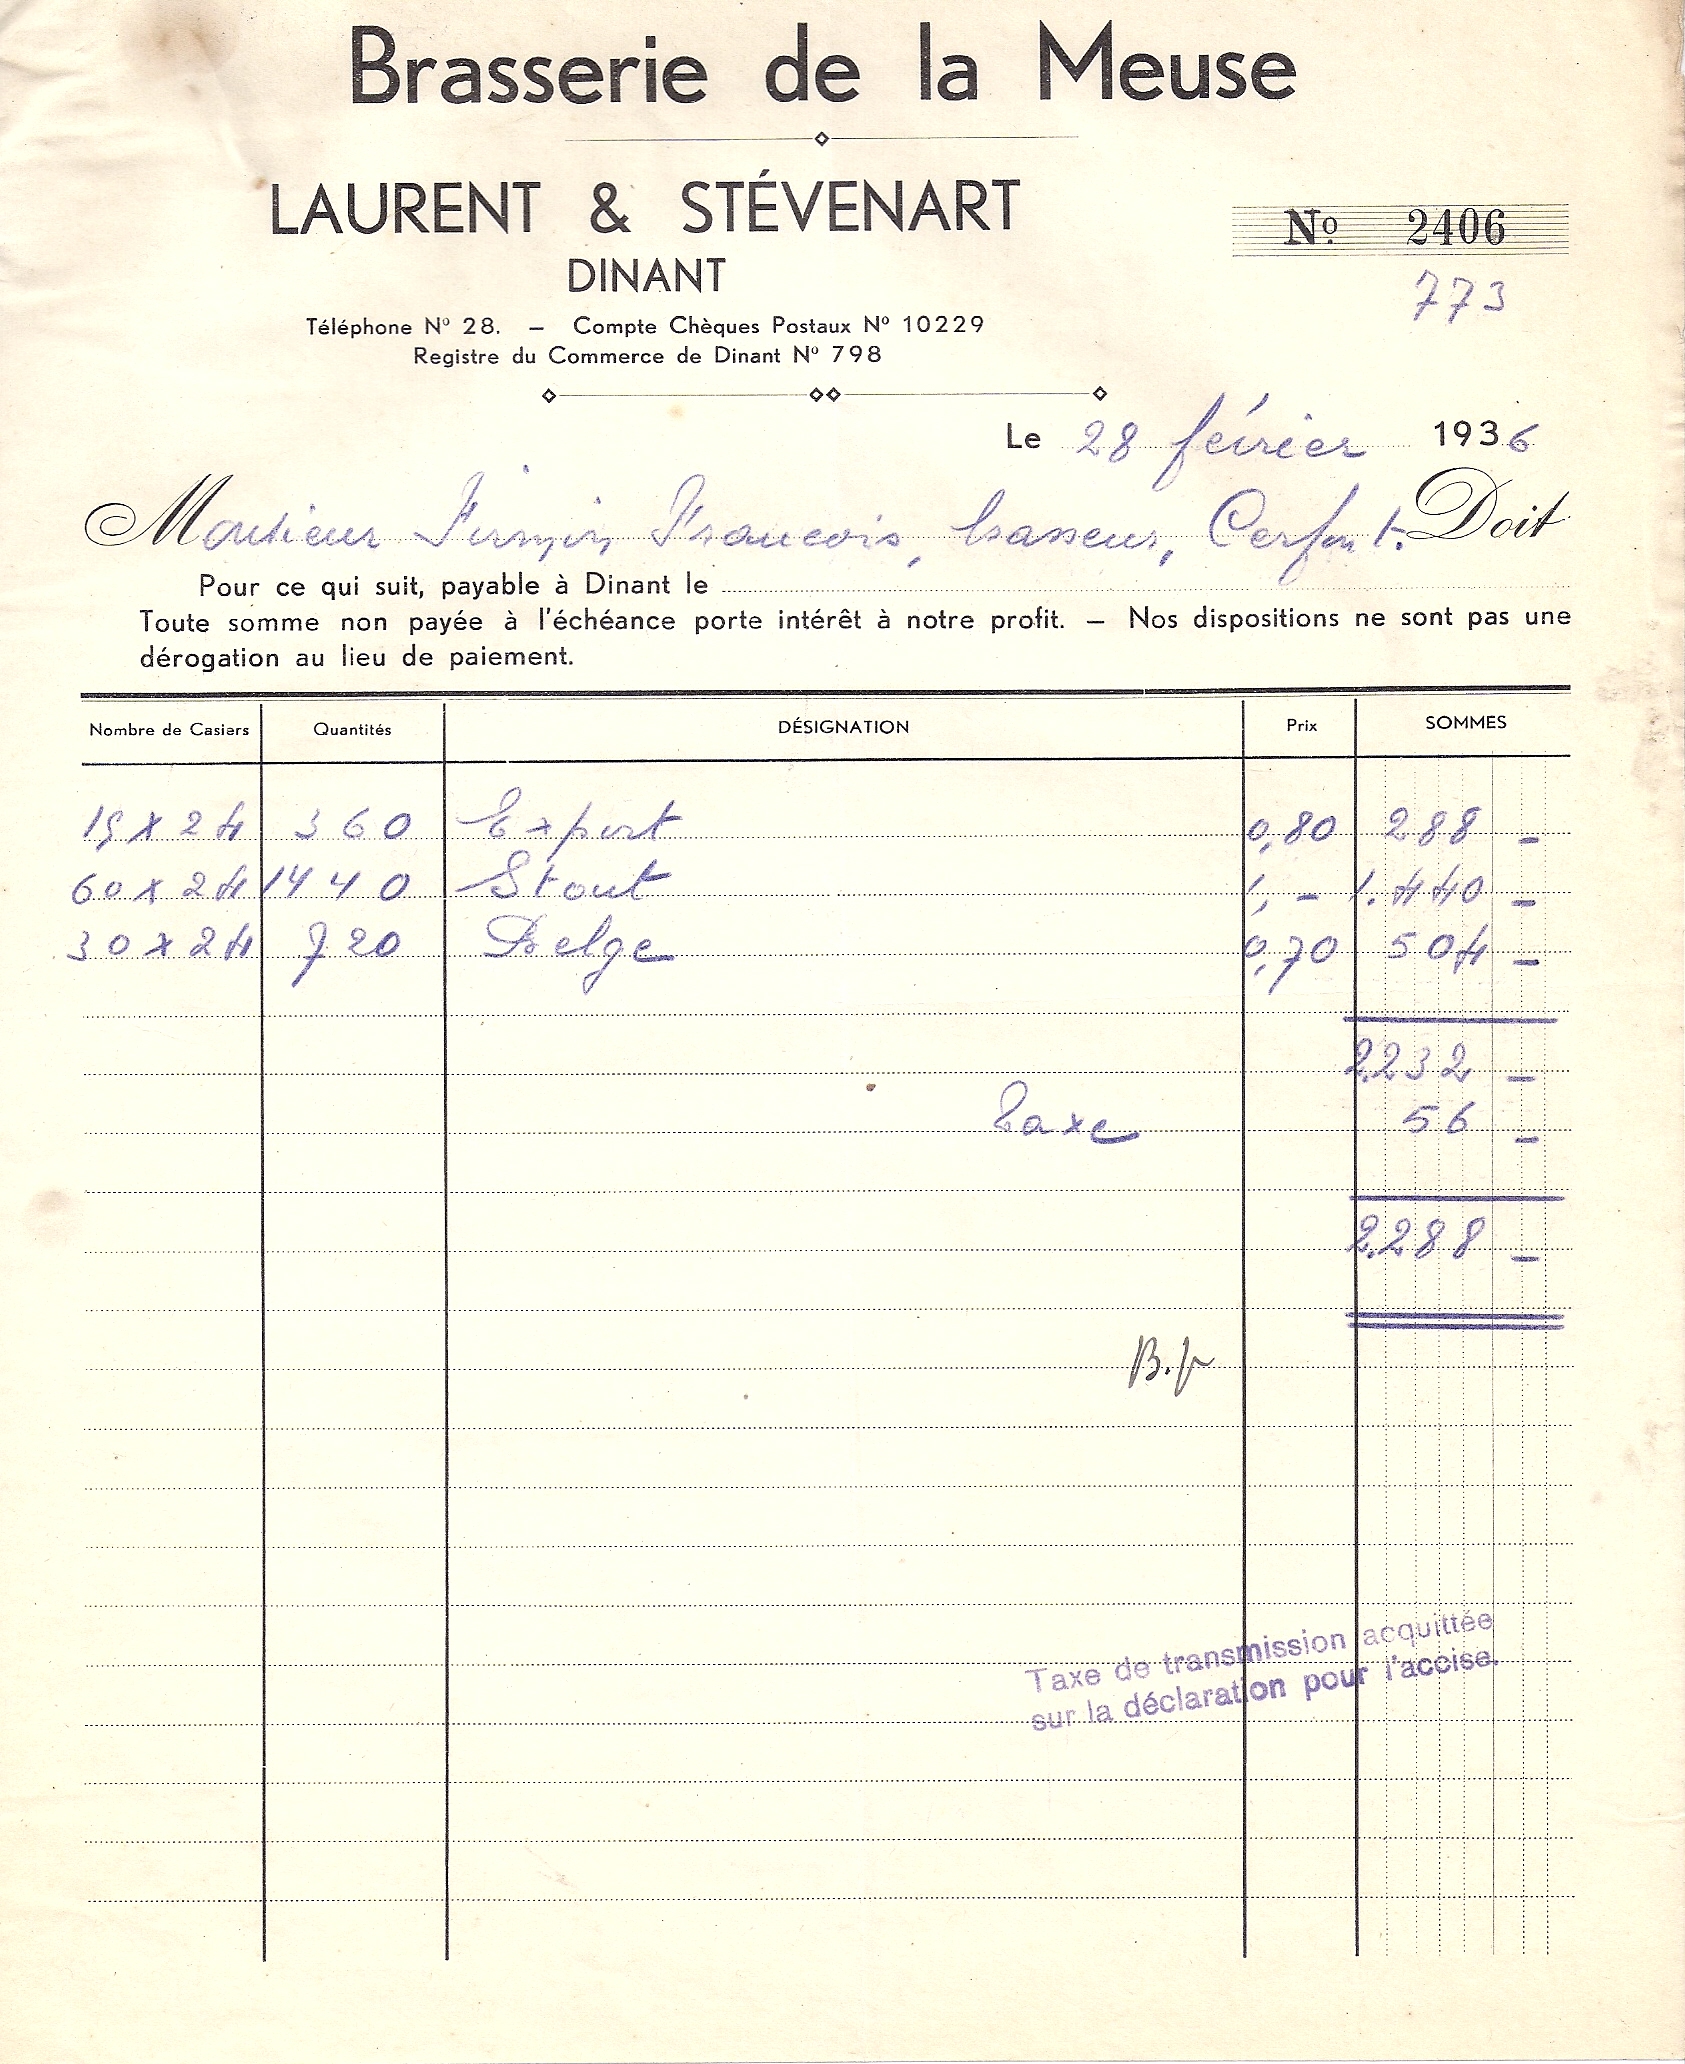 Brasserie de la Meuse
LAURENT & STÉVENART
Nº 2406
DINANT
773
Téléphone Nº 28. – Compte Chèques Postaux Nº 10229
Registre du Commerce de Dinant Nº 798
Le 28 février 1936
Monsieur Firmin Francois, brasseur, Cerfont. Doit
Pour ce qui suit, payable à Dinant le
Toute somme non payée à l'échéance porte intérêt à notre profit. – Nos dispositions ne sont pas une
dérogation au lieu de paiement.
Nombre de Casiers Quantités DÉSIGNATION Prix SOMMES
15 x 24 360 Export 0,80 288 -
60 x 24 1440 Stout 1,- 1.440 -
30 x 24 720 Belge 0,70 504 -
2.232 -
Taxe 56 -
2.288 -
Taxe de transmission acquittée
sur la déclaration pour l'accise.